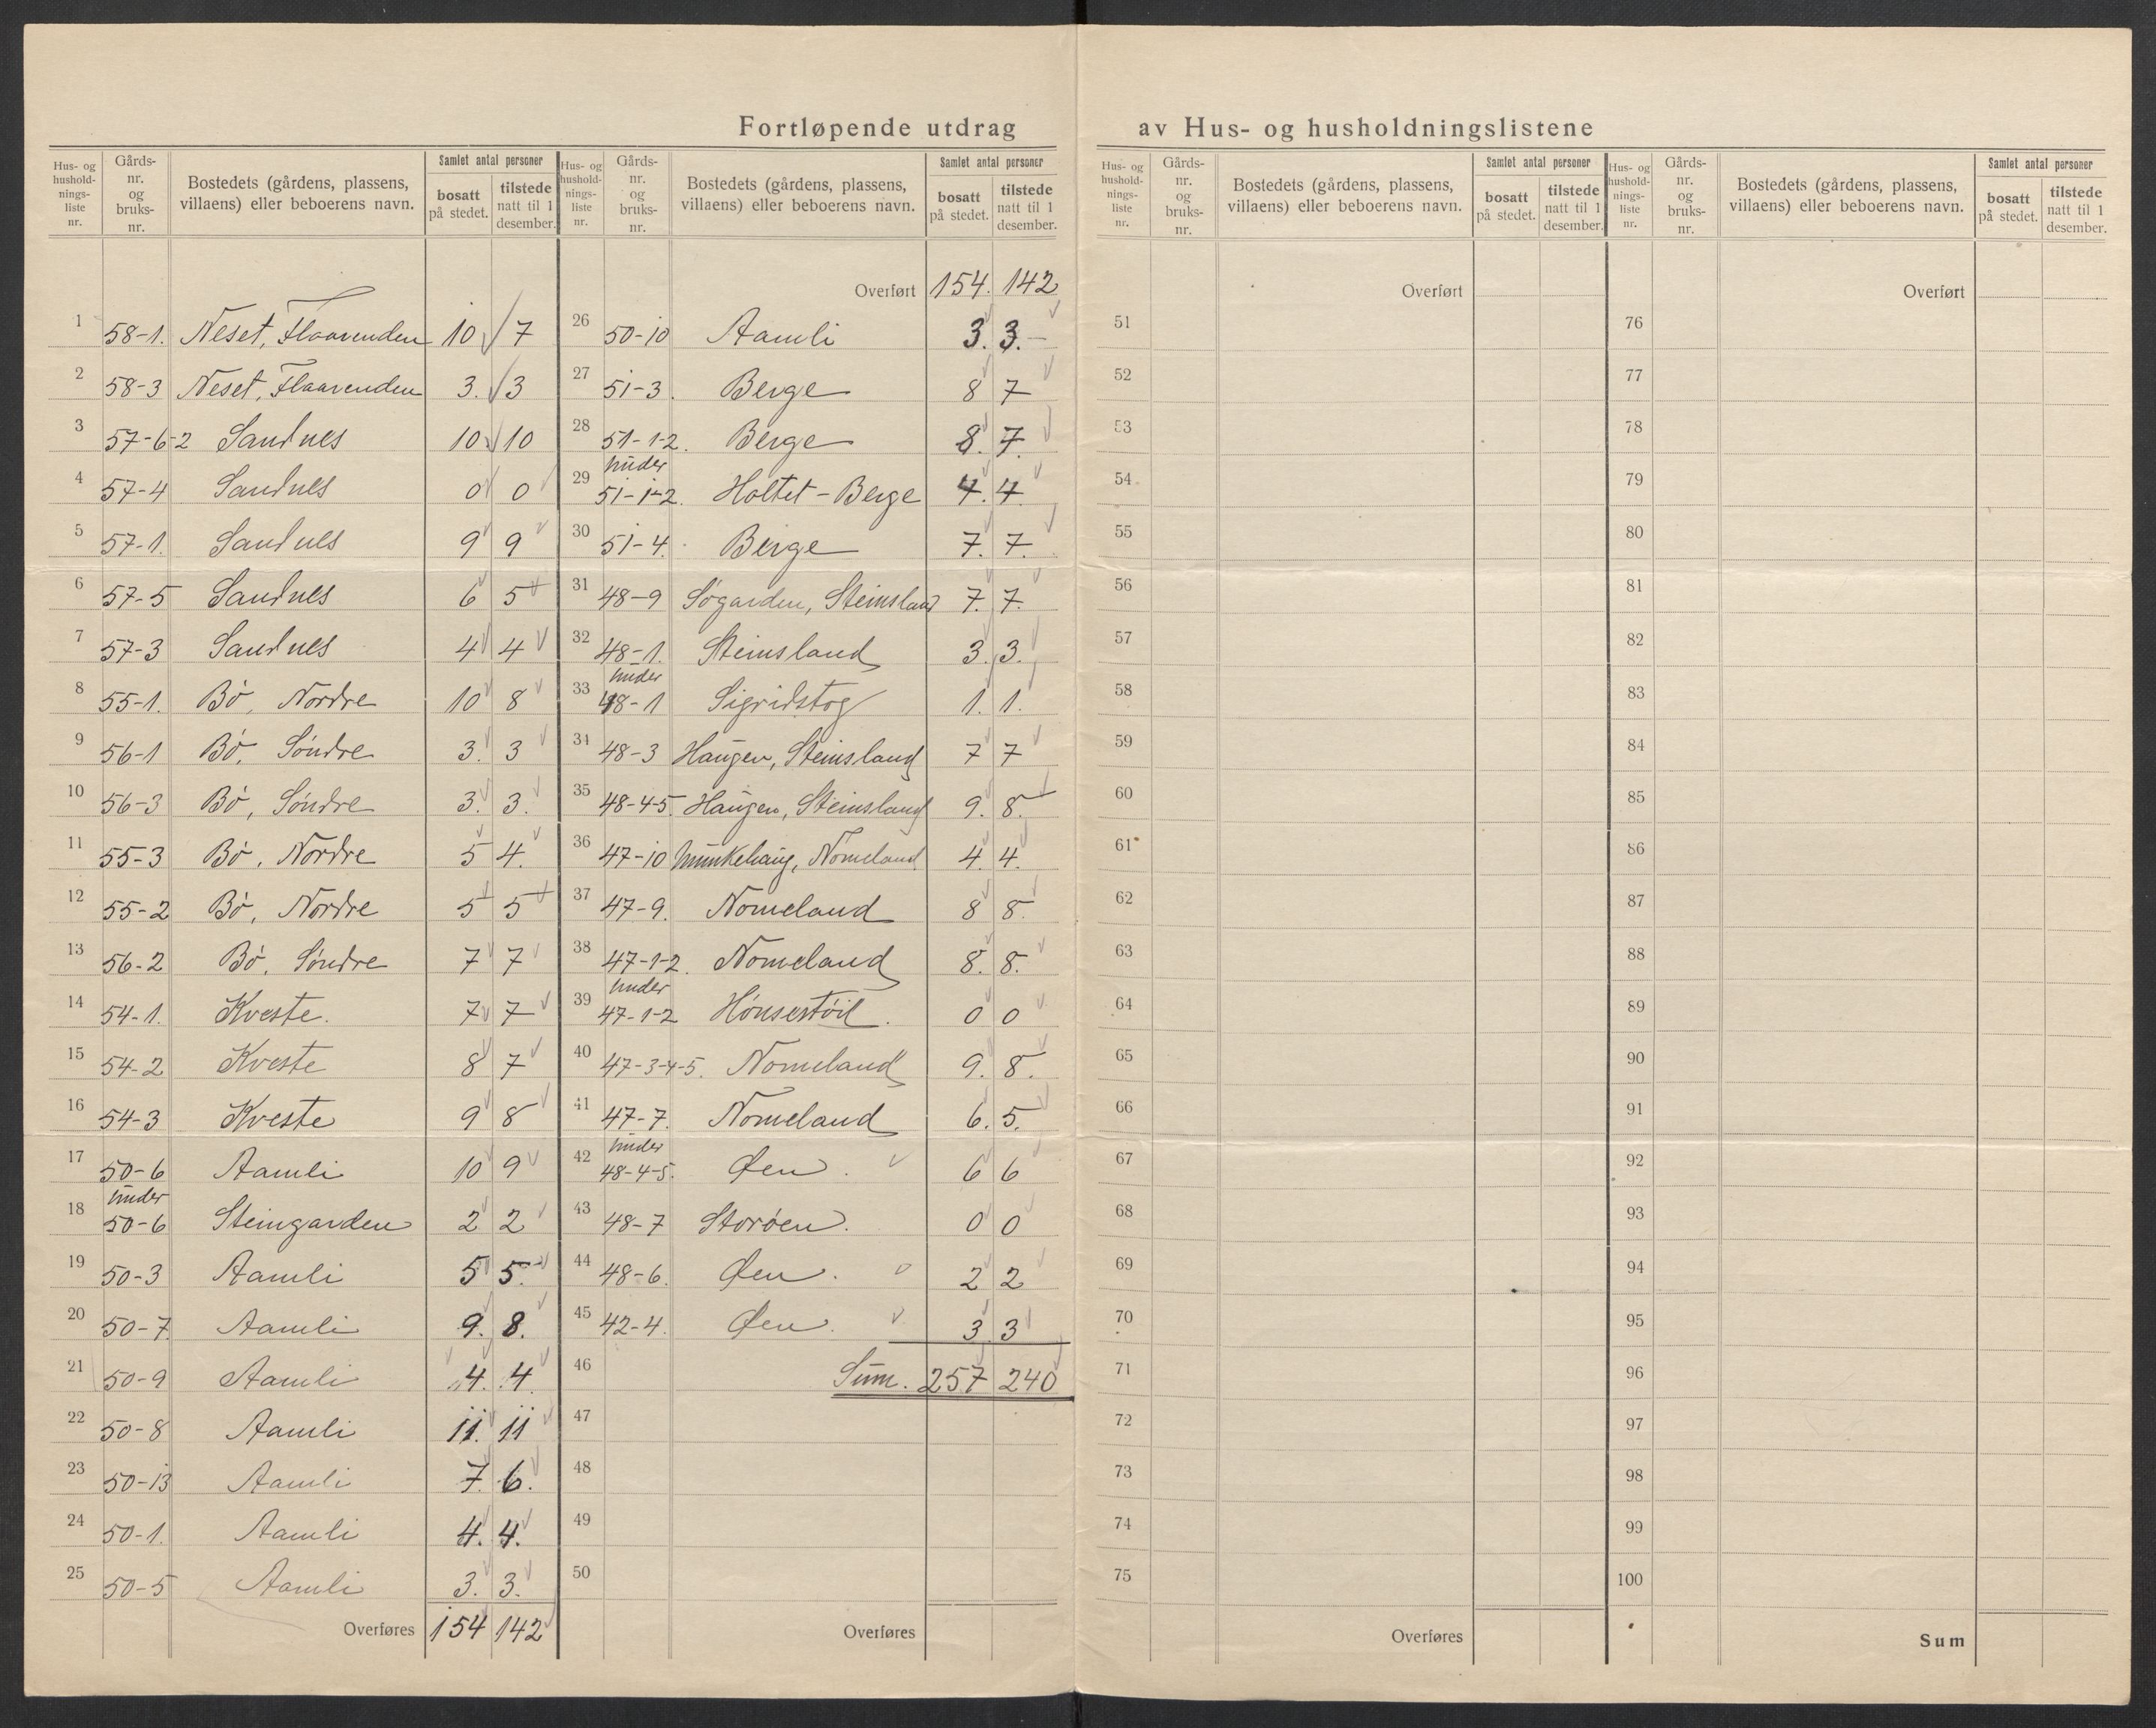 Fortløpende utdrag av Hus- og husholdningslistene
Hus- og husholdnings-liste nr. | Gårds-nr. og bruks-nr. | Bostedets (gårdens, plassens, villaens) eller beboerens navn. | Samlet antal personer bosatt på stedet. | tilstede natt til 1 desember.
1 58-1. Neset, Flaarenden 10 7
2 58-3 Neset, Flaarenden 3. 3
3 57-6-2 Sandnes 10 10
4 57-4 Sandnes 0 0
5 57-1. Sandnes 9 9
6 57-5 Sandnes 6 5
7 57-3 Sandnes 4 4
8 55-1. Bö, Nordre 10 8
9 56-1 Bö, Söndre 3. 3
10 56-3 Bö, Söndre 3. 3.
11 55-3 Bö, Nordre 5 4.
12 55-2 Bö, Nordre 5 5
13 56-2 Bö, Söndre 7 7
14 54-1. Kveste. 7 7
15 54-2 Kveste 8 7
16 54-3 Kveste 9 8
17 50-6 Aamli 10 9
18 under 50-6 Steingarden 2 2
19 50-3 Aamli 5 5.
20 50-7 Aamli 9. 8.
21 50-9 Aamli 4. 4.
22 50-8 Aamli 11. 11
23 50-13 Aamli 7. 6.
24 50-1. Aamli 4. 4.
25 50-5 Aamli 3. 3.
Overføres 154 142
Hus- og husholdnings-liste nr. | Gårds-nr. og bruks-nr. | Bostedets (gårdens, plassens, villaens) eller beboerens navn. | Samlet antal personer bosatt på stedet. | tilstede natt til 1 desember.
Overført 154. 142
26 50-10 Aamli 3. 3.-
27 51-3. Berge 8 7
28 51-1-2. Berge 8. 7.
29 under 51-1-2. Holtet - Berge 4. 4.
30 51-4. Berge 7. 7.
31 48-9 Søgarden, Steinsland 7. 7.
32 48-1. Steinsland 3. 3.
33 under 48-1 Sigridstog 1. 1.
34 48-3 Haugen, Steinsland 7 7
35 48-4-5. Haugen, Steinsland 9. 8.
36 47-10 Munkehaug, Nomeland 4. 4.
37 47-9. Nomeland 8 8.
38 47-1-2. Nomeland 8. 8.
39 under 47-1-2 Hönsestöil. 0 0
40 47-3-4-5. Nomeland 9. 8.
41 47-7. Nomeland 6. 5.
42 under 48-4-5. Øen. 6 6
43 48-7 Storöen. 0 0
44 48-6. Øen. 2 2
45 42-4. Øen. 3 3
46 Sum. 257 240
47
48
49
50
Overføres
Hus- og husholdnings-liste nr. | Gårds-nr. og bruks-nr. | Bostedets (gårdens, plassens, villaens) eller beboerens navn. | Samlet antal personer bosatt på stedet. | tilstede natt til 1 desember.
Overført
51
52
53
54
55
56
57
58
59
60
61
62
63
64
65
66
67
68
69
70
71
72
73
74
75
Overføres
Hus- og husholdnings-liste nr. | Gårds-nr. og bruks-nr. | Bostedets (gårdens, plassens, villaens) eller beboerens navn. | Samlet antal personer bosatt på stedet. | tilstede natt til 1 desember.
Overført
76
77
78
79
80
81
82
83
84
85
86
87
88
89
90
91
92
93
94
95
96
97
98
99
100
Sum